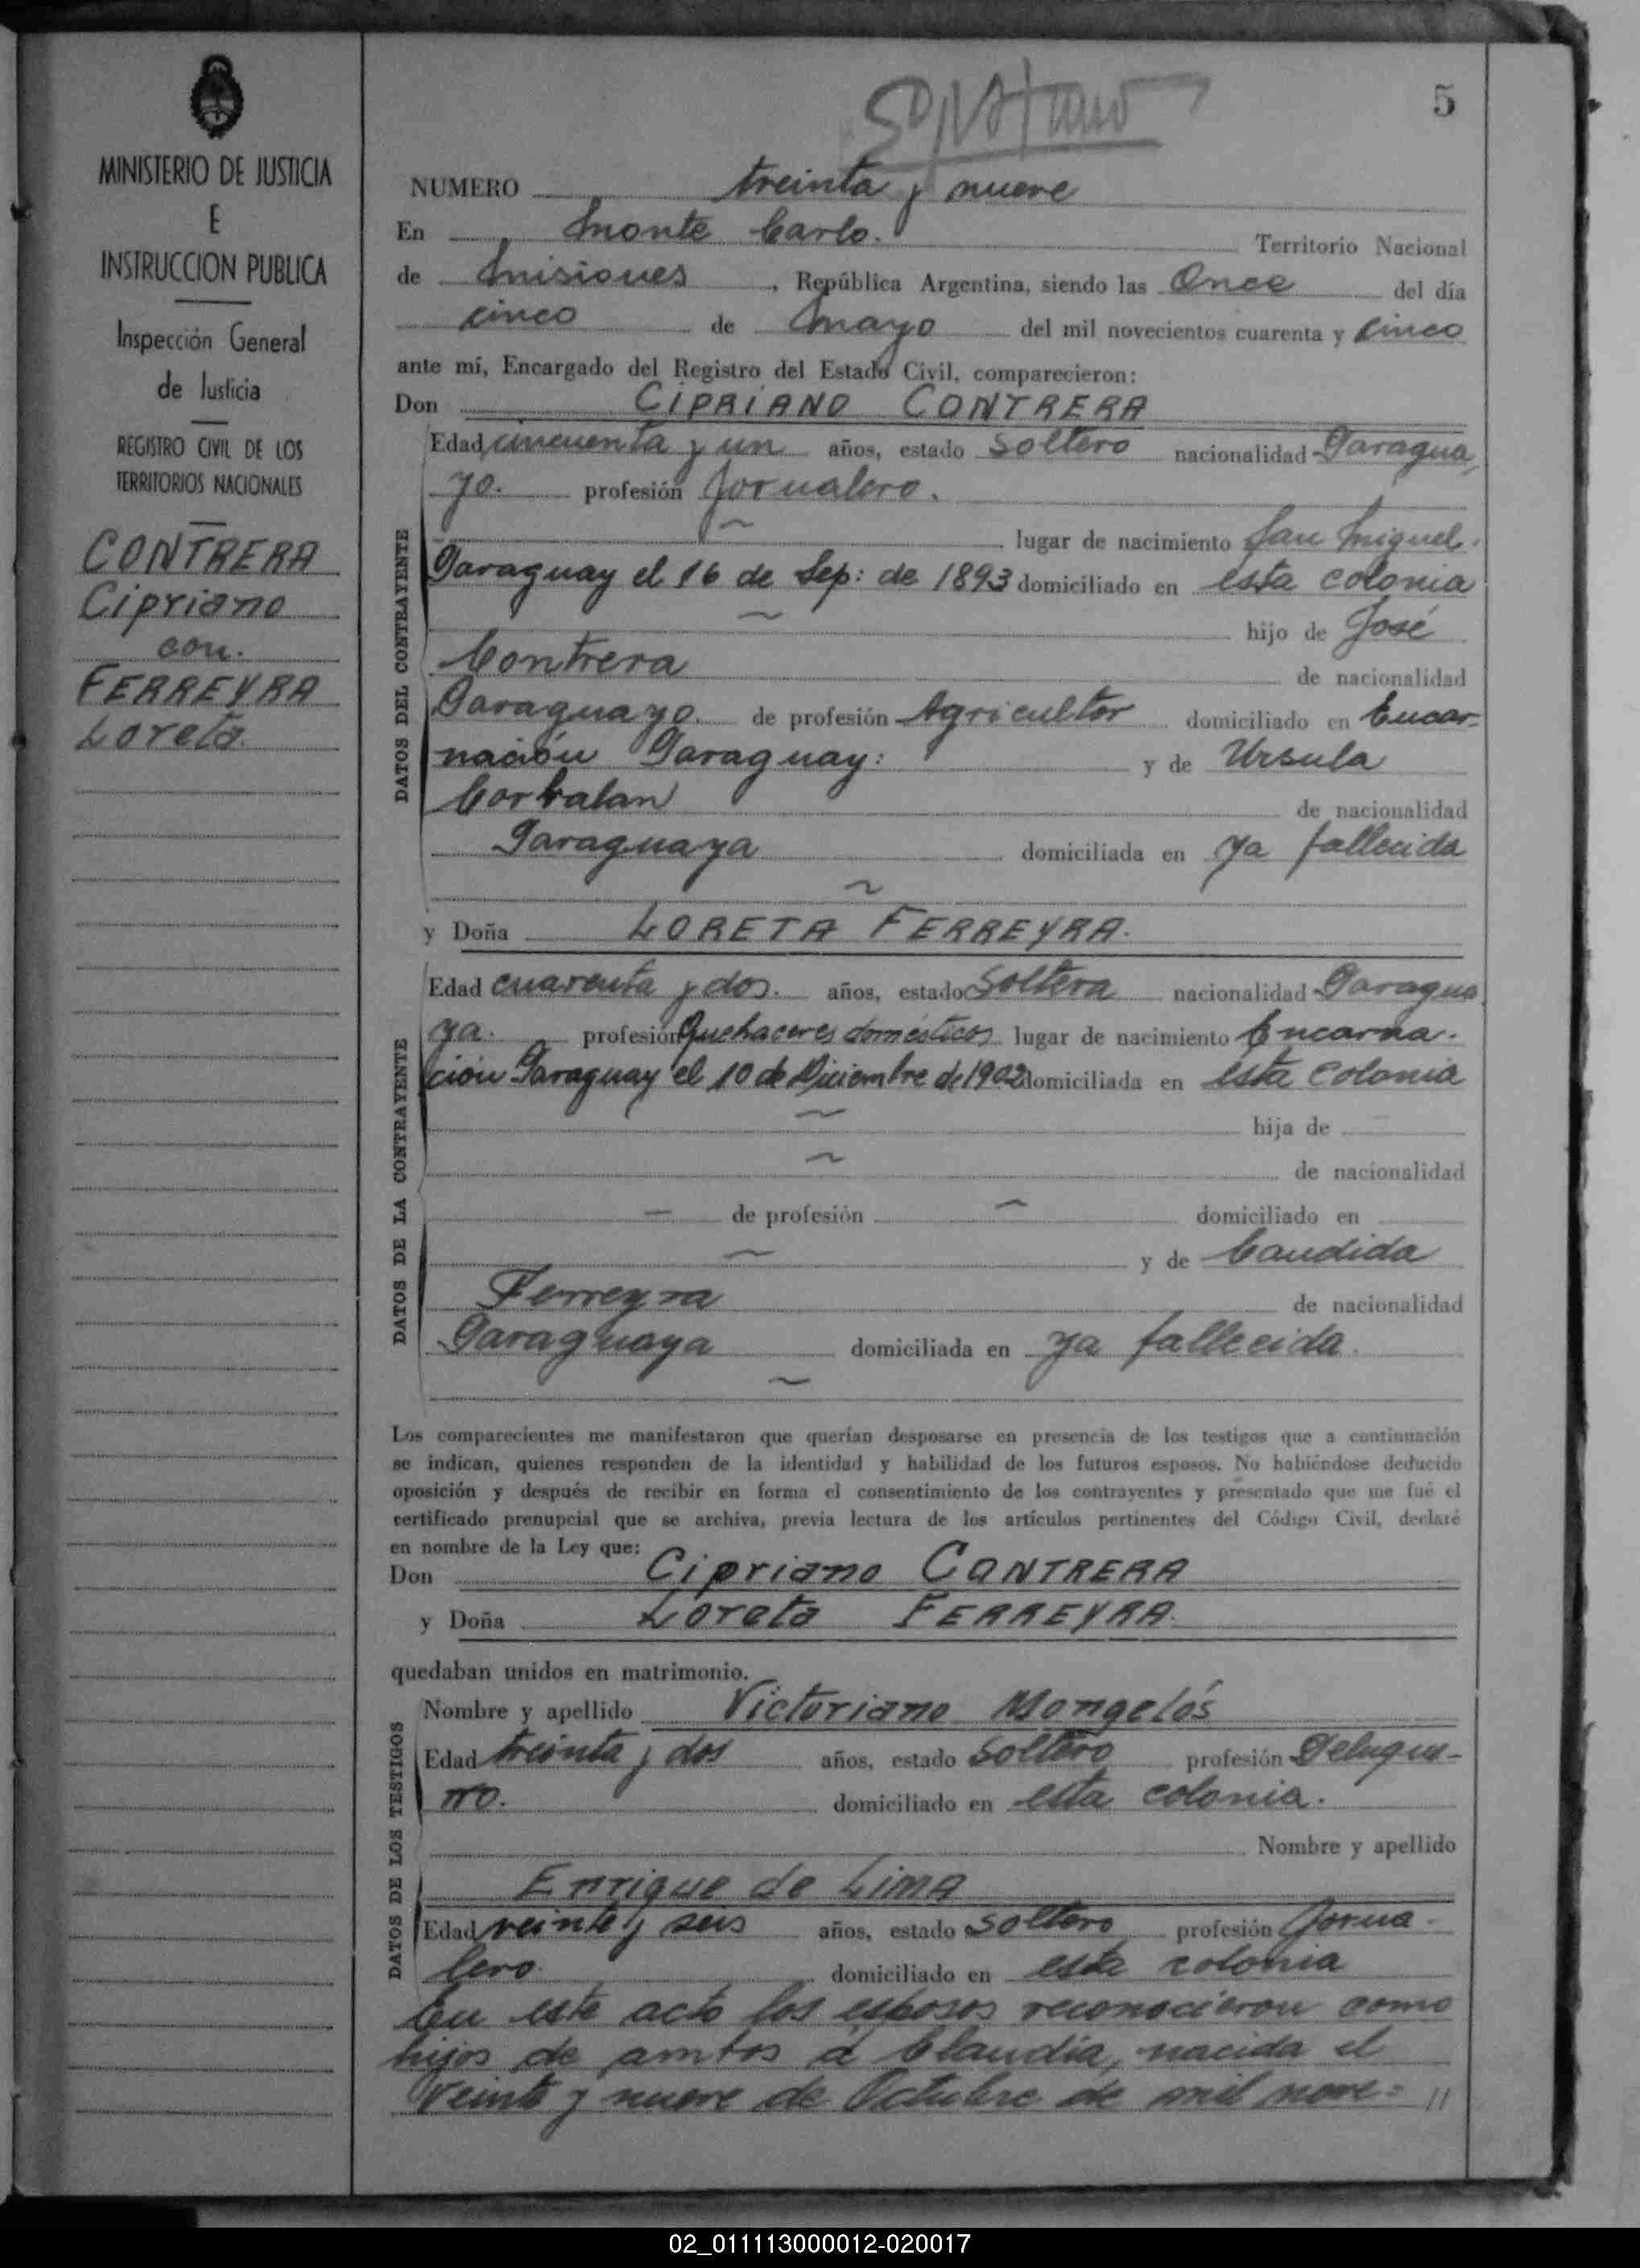 MINISTERIO DE JUSTICIA
E
INSTRUCCION PUBLICA
Inspección General
de Justicia
REGISTRO CIVIL DE LOS
TERRITORIOS NACIONALES
CONTRERA
Cipriano
con.
FERREYRA
Loreta.
5
NUMERO treinta y nueve
En Monte Carlo. Territorio Nacional
de Misiones, República Argentina, siendo las Once del día
cinco de Mayo del mil novecientos cuarenta y cinco
ante mí, Encargado del Registro del Estado Civil, comparecieron:
Don CIPRIANO CONTRERA
DATOS DEL CONTRAYENTE
Edad cincuenta y un años, estado soltero nacionalidad Paragua
yo. profesión Jornalero.
lugar de nacimiento San Miguel.
Paraguay el 16 de Sep: de 1893 domiciliado en esta colonia
hijo de José
Contrera de nacionalidad
Paraguayo. de profesión Agricultor domiciliado en Encar-
nación Paraguay: y de Ursula
Corbalan de nacionalidad
Paraguaya domiciliada en ya fallecida
y Doña LORETA FERREYRA.
DATOS DE LA CONTRAYENTE
Edad cuarenta y dos. años, estado soltera nacionalidad Paragua
ya. profesión Quehaceres domésticos lugar de nacimiento Encarna-
ción Paraguay el 10 de Diciembre de 1902 domiciliada en esta colonia
hija de
de nacionalidad
— de profesión domiciliado en
y de Candida
Ferreyra de nacionalidad
Paraguaya domiciliada en ya fallecida.
Los comparecientes me manifestaron que querían desposarse en presencia de los testigos que a continuación
se indican, quienes responden de la identidad y habilidad de los futuros esposos. No habiéndose deducido
oposición y después de recibir en forma el consentimiento de los contrayentes y presentado que me fué el
certificado prenupcial que se archiva, previa lectura de los artículos pertinentes del Código Civil, declaré
en nombre de la Ley que:
Don Cipriano CONTRERA
y Doña Loreta FERREYRA.
quedaban unidos en matrimonio.
DATOS DE LOS TESTIGOS
Nombre y apellido Victoriano Mongelós
Edad treinta y dos años, estado soltero profesión Peluque-
rro. domiciliado en esta colonia.
Nombre y apellido
Enrique de Lima
Edad veinte y seis años, estado soltero profesión Jorna-
lero. domiciliado en esta colonia
En este acto los esposos reconocieron como
hijos de ambos a Claudia, nacida el
veinte y nueve de Octubre de mil nove= //
02_011113000012-020017